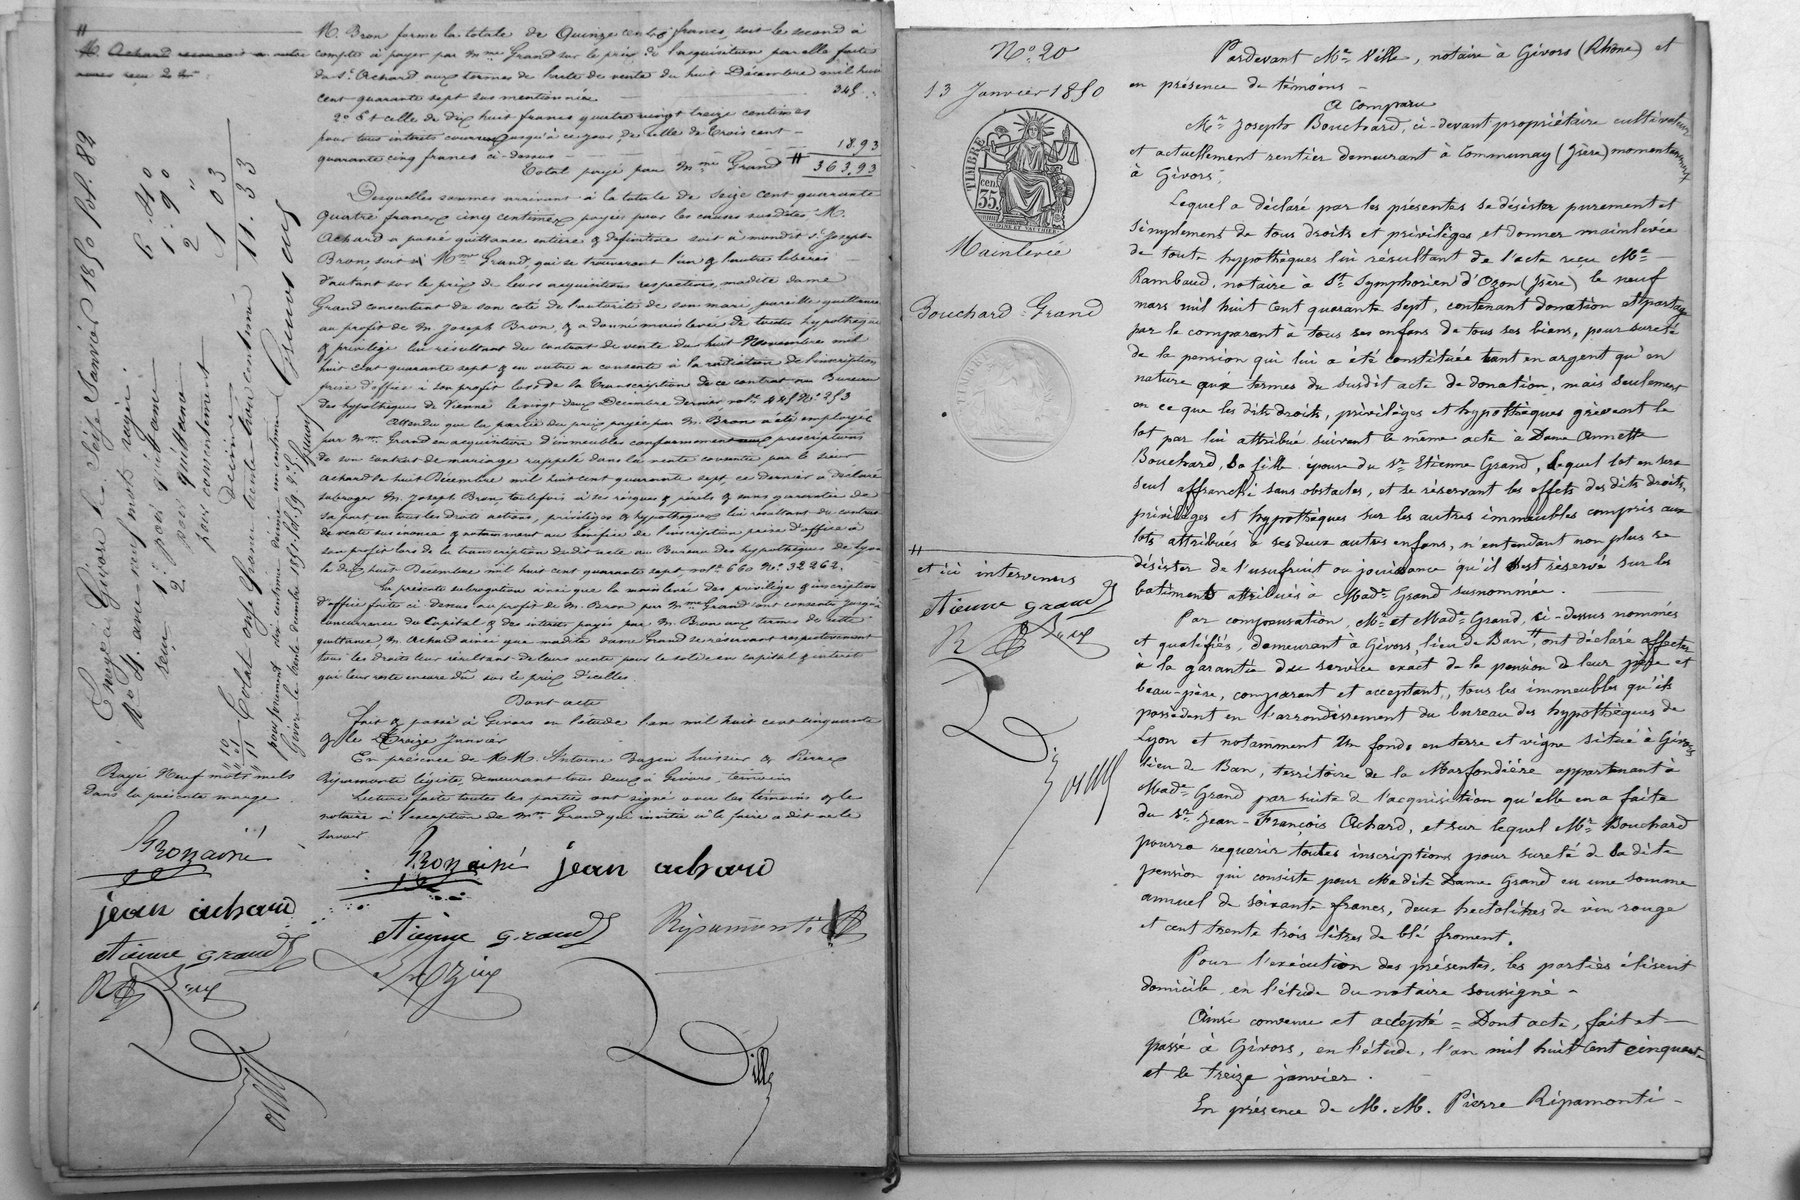 M. Bron forme la totale de Quinze cents francs, soit le second à
M. Achard reconnait en outre
compte à payer par Mme Grand sur le prix de l'acquisition par elle faite
avoir reçu de Mr
du Sr Achard aux termes de l'acte de vente du huit Décembre mil huit
cent quarante sept sus mentionnée 345 "
2° Et celle de dix huit francs quatre vingt treize centimes
pour tous intérêts courus jusqu'à ce jour, de celle de trois cent
quarante cinq francs ci-dessus 18.93
Total payé par Mme Grand 363.93
Desquelles sommes arrivant à la totale de Seize cent quarante
quatre francs cinq centimes payées pour les causes susdites, M.
Achard a passé quittance entière & définitive soit à mondit Sr Joseph
Bron, soit à Mme Grand, qui se trouveront l'un & l'autre libérés
d'autant sur le prix de leurs acquisitions respectives, madite dame
Grand consentant de son coté de l'autorité de son mari, pareille quittance
au profit de M. Joseph Bron, & a donné mainlevée de toutes hypothèques
& privilège lui résultant du contrat de vente du huit Novembre mil
huit cent quarante sept & en outre a consenti à la radiation de l'inscription
prise d'office à son profit lors de la transcription de ce contrat au Bureau
des hypothèques de Vienne le vingt deux Décembre dernier vol. 445 N° 253
Attendu que la partie du prix payée par M. Bron a été employée
par Mme Grand en acquisition d'immeubles conformément aux prescriptions
de son contrat de mariage rappelé dans la vente consentie par le sieur
Achard le huit Décembre mil huit cent quarante sept, ce dernier a déclaré
subroger M. Joseph Bron, toutefois à ses risques & périls & sans garantie de
sa part en tous les droits actions, privilèges & hypothèques lui résultant du contrat
de vente susénoncé & notamment au bénéfice de l'inscription prise d'office à
son profit lors de la transcription dudit acte au Bureau des hypothèques de Lyon
le dix huit Décembre mil huit cent quarante sept, vol. 660 N° 32262.
La présente subrogation ainsi que la mainlevée des privilège & inscription
d'office faite ci-dessus au profit de M. Bron par Mme Grand sont consenties jusqu'à
concurrence du Capital & des intérêts payés par M. Bron aux termes de cette
quittance, M. Achard ainsi que madite dame Grand se réservant respectivement
tous les droits leur résultant de leurs ventes pour le solde en capital & intérêt
qui leur reste encore dû sur le prix d'icelles.
Dont acte
Fait & passé à Givors en l'étude l'an mil huit cent cinquante
& le Treize Janvier
En présence de MM. Antoine huissier & Pierre
Ripamonti légiste, demeurant tous deux à Givors, témoins
Lecture faite toutes les parties ont signé avec les témoins & le
notaire à l'exception de Mme Grand qui invitée à le faire a dit ne le
savoir
Enregistré à Givors le Seize Janvier 1850 fol. 82
pour quittance 1.90
pour quittance 2 "
pour consentement
Décime 1 03
Total onze francs trente trois centimes 11.33
Rayé Neuf mots nuls
dans la présente marge
jean achard
jean achard
etienne grand
etienne grand
Ripamonti
Ville
N° 20
13 Janvier 1850
TIMBRE
35 cen.
Mainlevée
Bouchard - Grand
et ici intervenus
etienne grand
Pardevant Me Ville, notaire à Givors (Rhône) et
en présence de témoins
A comparu
Mr Joseph Bouchard, ci-devant propriétaire cultivateur
et actuellement rentier demeurant à Communay (Isère) momentanément
à Givors;
Lequel a déclaré par les présentes se désister purement et
simplement de tous droits et privilèges et donner mainlevée
de toute hypothèques lui résultant de l'acte reçu Me
Rambaud, notaire à St Symphorien d'Ozon (Isère) le neuf
mars mil huit cent quarante sept, contenant donation et partage
par le comparant à tous ses enfans de tous ses biens, pour sureté
de la pension qui lui a été constituée tant en argent qu'en
nature aux termes du susdit acte de donation, mais seulement
en ce que les dits droits, privilèges et hypothèques grèvent le
lot par lui attribué suivant le même acte à Dame Annette
Bouchard, sa fille épouse du Sr Etienne Grand, lequel lot en sera
seul affranchi sans obstacles, et se réservant les effets des dits droits,
privilèges et hypothèques sur les autres immeubles compris aux
lots attribués à ses deux autres enfans, n'entendant non plus se
désister de l'usufruit ou jouissance qu'il s'est réservé sur les
bâtiments attribués à Made Grand susnommée.
Par compensation, Mr et Made Grand, ci-dessus nommés
et qualifiés, demeurant à Givors, lieu de Ban, ont déclaré affecter
à la garantie du service exact de la pension de leur père et
beau-père, comparant et acceptant, tous les immeubles qu'ils
possèdent en l'arrondissement du bureau des hypothèques de
Lyon et notamment un fonds en terre et vigne situé à Givors
lieu de Ban, territoire de la Marfondière appartenant à
Made Grand par suite de l'acquisition qu'elle en a faite
du Sr Jean-François Achard, et sur lequel Mr Bouchard
pourra requérir toutes inscriptions pour sureté de sa dite
pension qui consiste pour Madite Dame Grand en une somme
annuel de soixante francs, deux hectolitres de vin rouge
et cent trente trois litres de blé froment.
Pour l'exécution des présentes, les parties élisent
domicile en l'étude du notaire soussigné -
Ainsi convenu et accepté = Dont acte, fait et
passé à Givors, en l'étude, l'an mil huit cent cinquante
et le treize janvier.
En présence de M. M. Pierre Ripamonti -